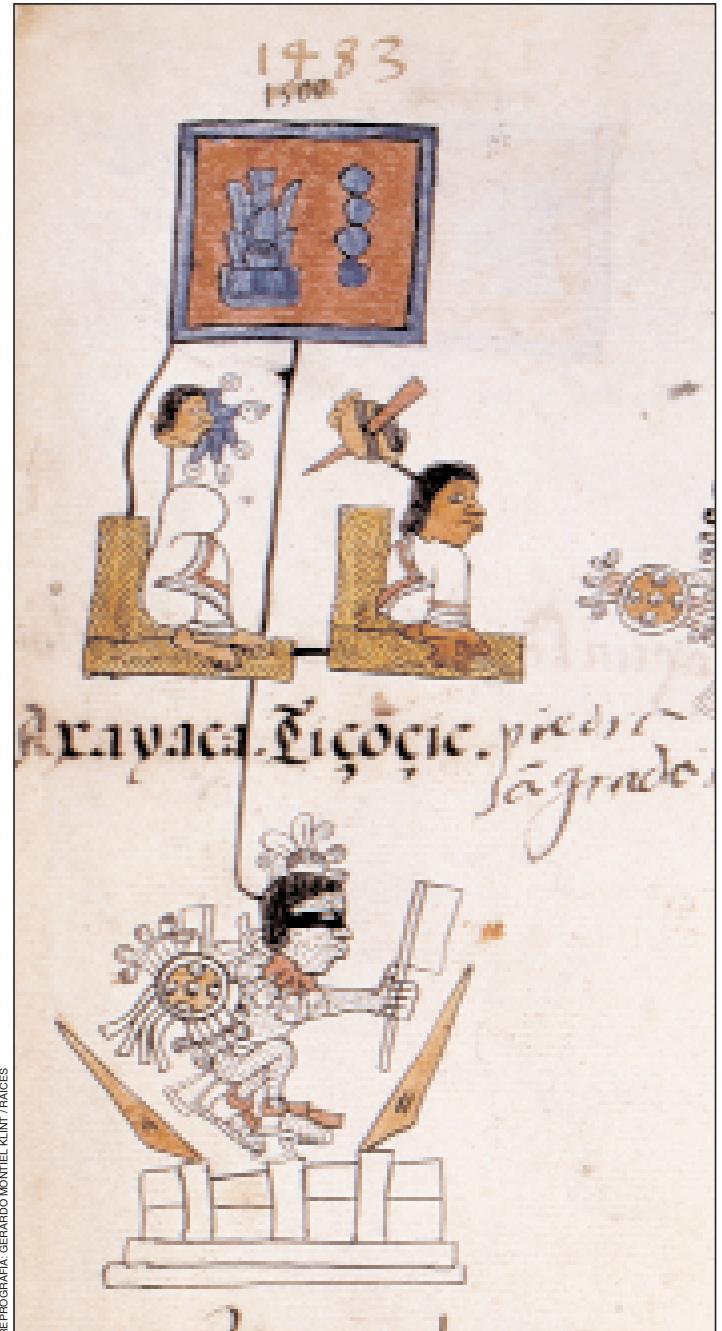 1483
1500
Axayaca.Tiçoçic. piedra
REPROGRAFÍA: GERARDO MONTIEL KLINT / RAÍCES